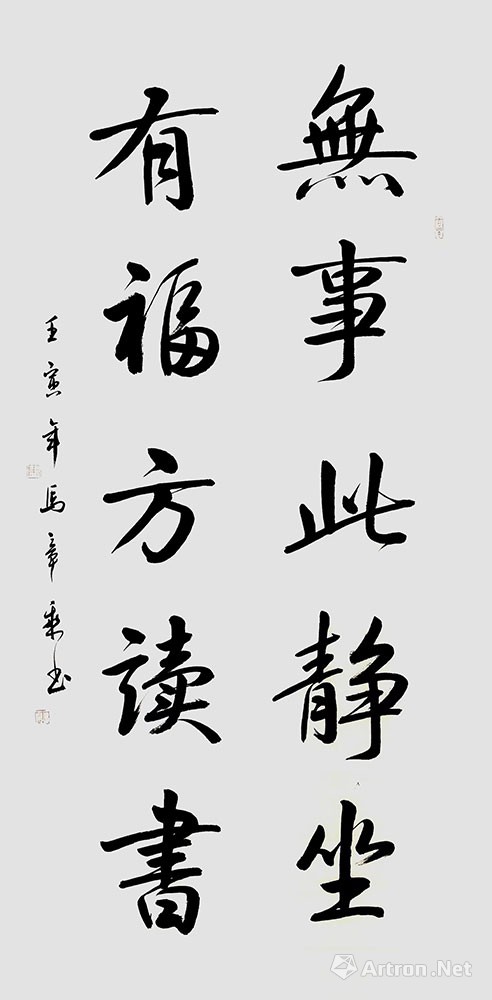 無事此静坐
有福方讀書
壬寅年馬章乘书
Artron.Net